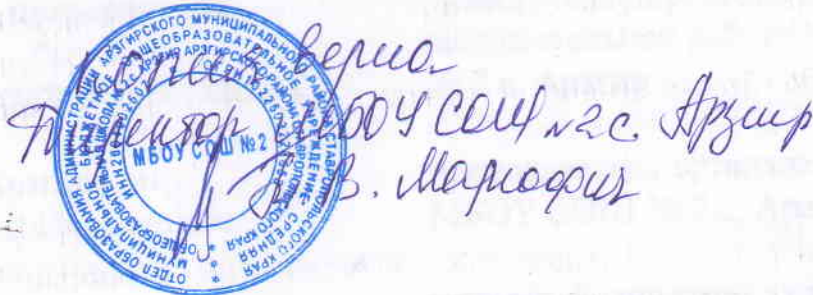 Копия верна
Директор МБОУ СОШ №2 с. Арзгир
В.
МБОУ СОШ №2
ОТДЕЛ ОБРАЗОВАНИЯ АДМИНИСТРАЦИИ АРЗГИРСКОГО МУНИЦИПАЛЬНОГО РАЙОНА СТАВРОПОЛЬСКОГО КРАЯ
МУНИЦИПАЛЬНОЕ БЮДЖЕТНОЕ ОБЩЕОБРАЗОВАТЕЛЬНОЕ УЧРЕЖДЕНИЕ СРЕДНЯЯ
ОБЩЕОБРАЗОВАТЕЛЬНАЯ ШКОЛА №2 с. АРЗГИР АРЗГИРСКОГО РАЙОНА СТАВРОПОЛЬСКОГО КРАЯ